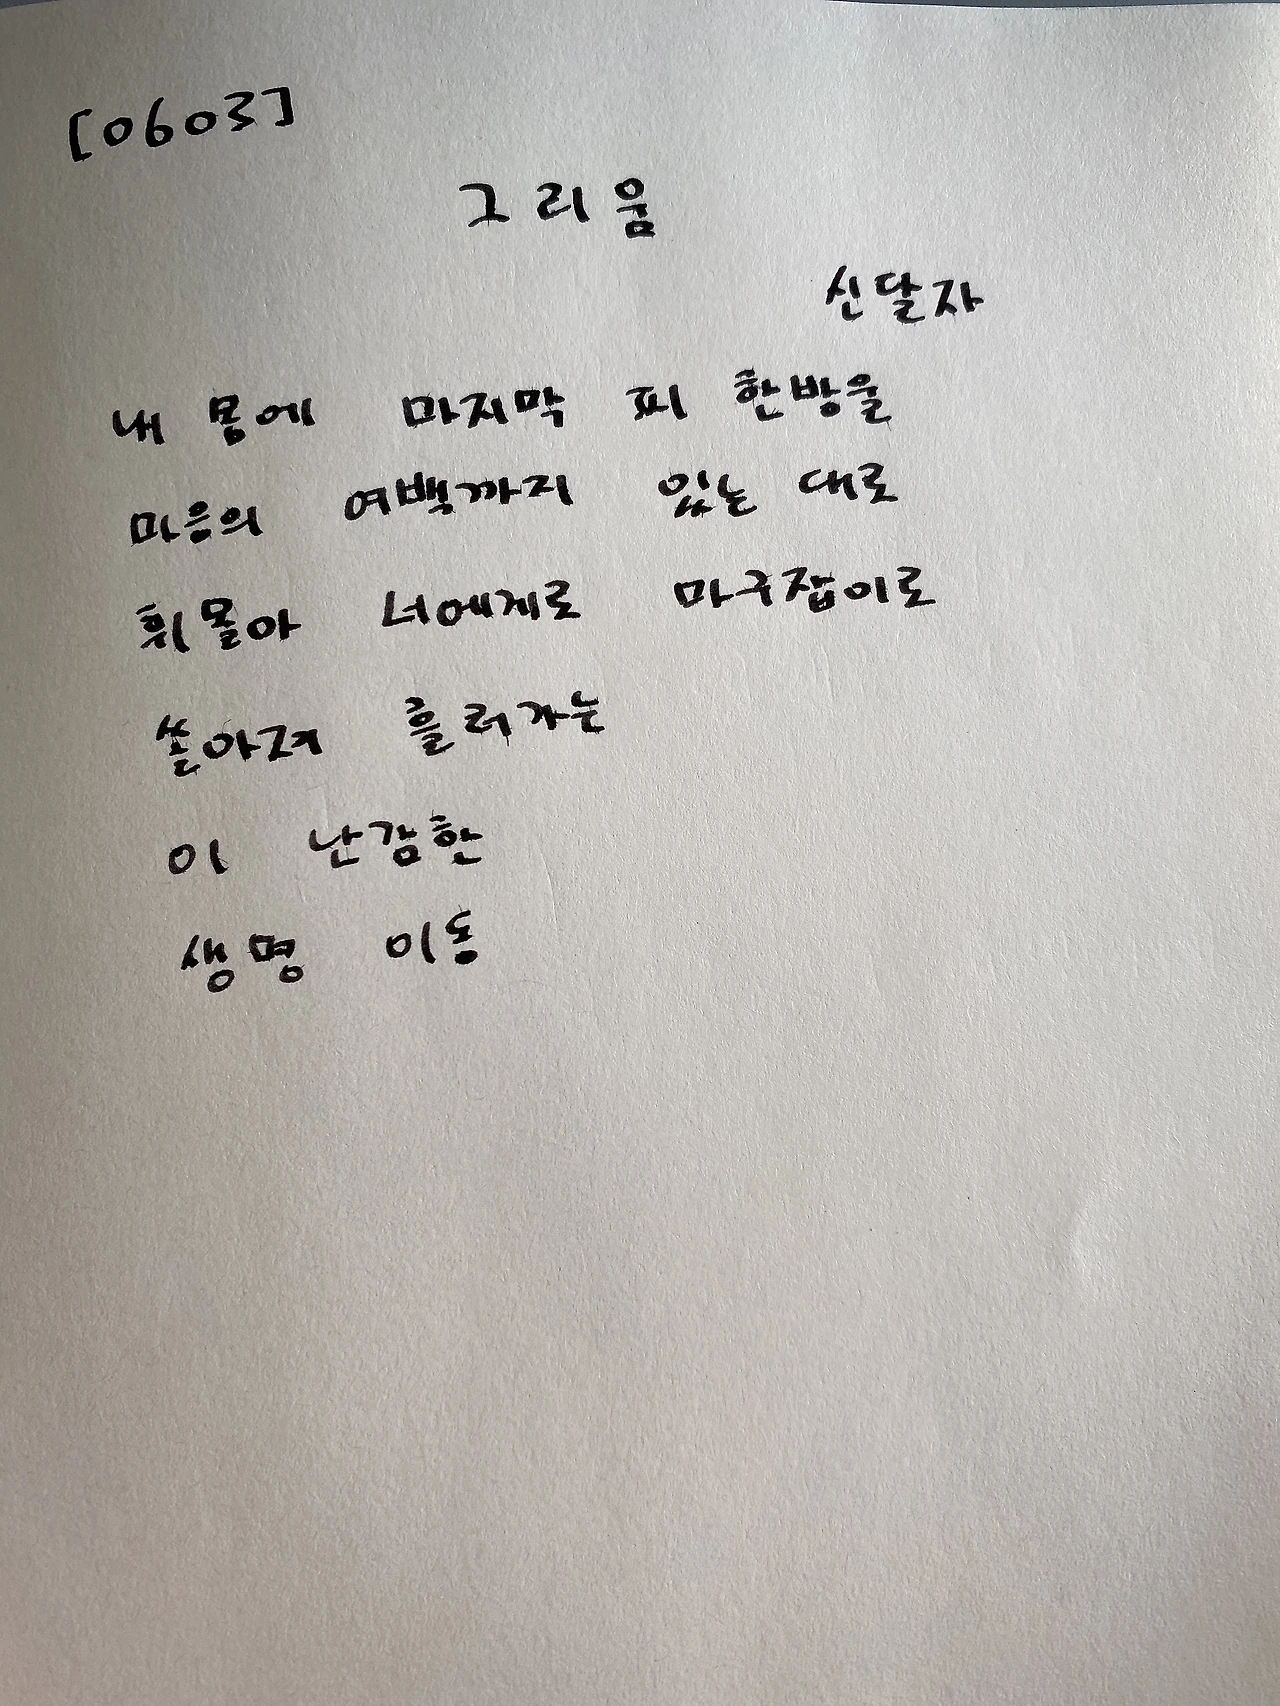 [0603]
그리움
신달자
내 몸에 마지막 피 한방울
마음의 여백까지 있는 대로
휘몰아 너에게로 마구잡이로
쏟아져 흘러가는
이 난감한
생명 이동